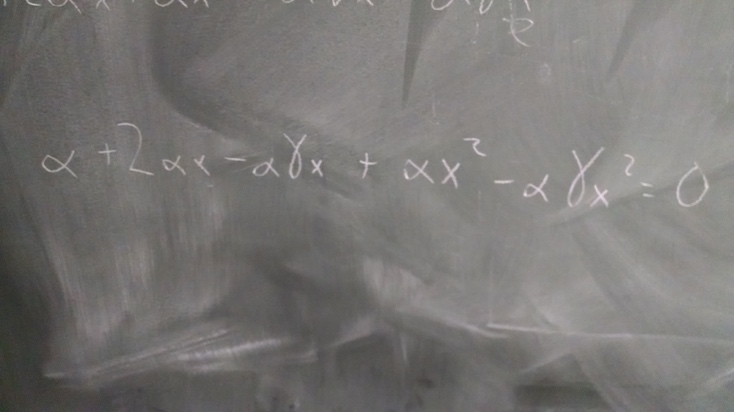 α + 2αx - αγx + αx² - αγx² = 0